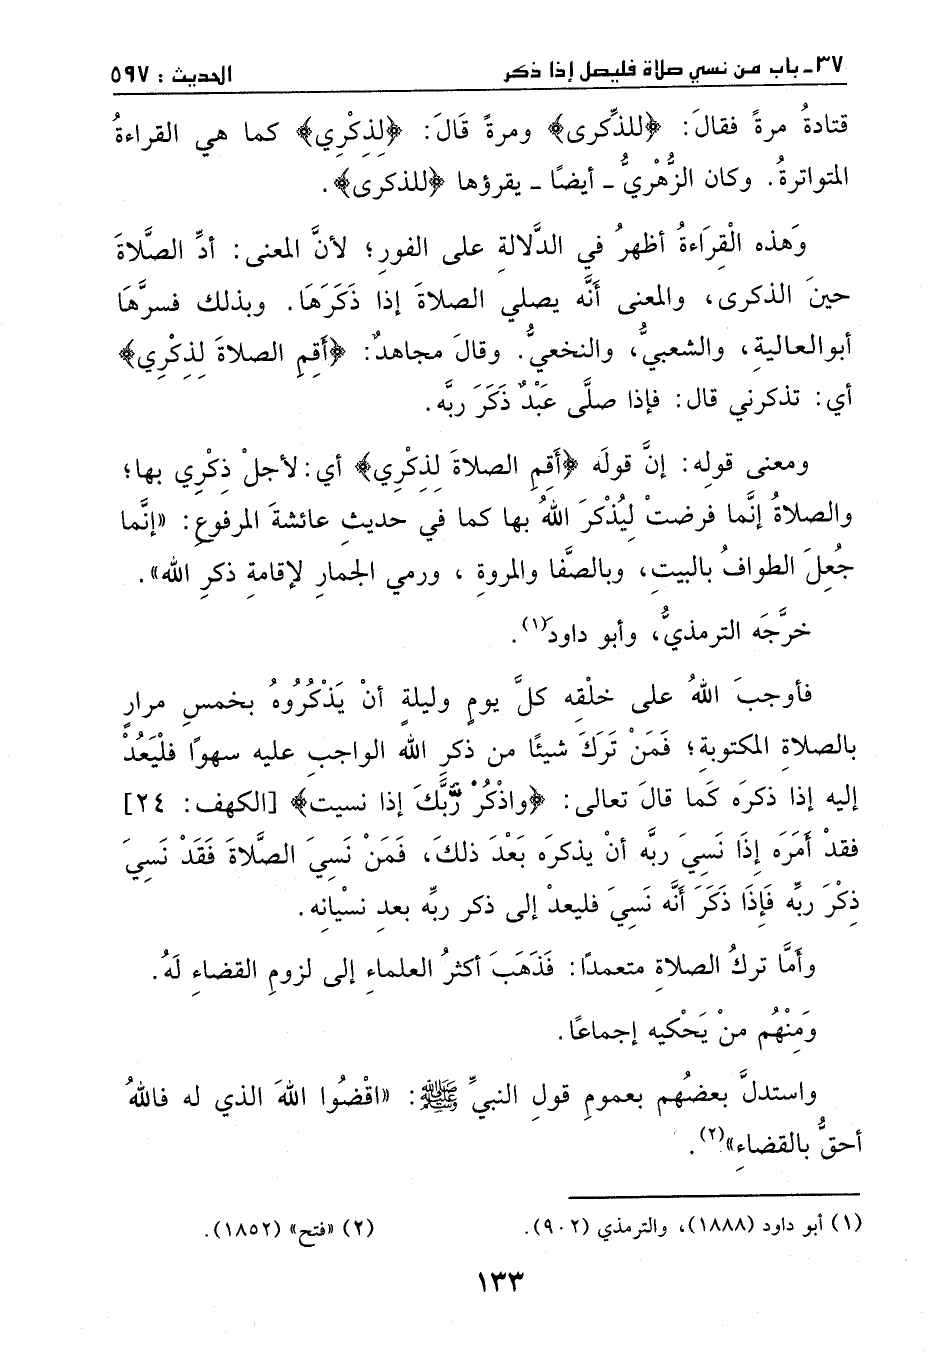 ٣٧ـ باب من نسي صلاة فليصل إذا ذكر الحديث : ٥٩٧
قتادةُ مرةً فقالَ: ﴿للذِّكرى﴾ ومرةً قَالَ: ﴿لِذِكْرِي﴾ كما هي القراءةُ
المتواترةُ. وكان الزُّهْريُّ ـ أيضًا ـ يقرؤها ﴿للذكرى﴾.
وَهذه الْقِرَاءةُ أظهرُ في الدَّلالة على الفور؛ لأنَّ المعنى: أدِّ الصَّلاةَ
حينَ الذكرى، والمعنى أنَّه يصلي الصلاةَ إذا ذَكَرَهَا. وبذلك فسرَّها
أبوالعاليةِ، والشعبيُّ، والنخعيُّ. وقالَ مجاهدٌ: ﴿أَقِمِ الصلاةَ لِذِكْرِي﴾
أي: تذكرني قال: فإذا صلَّى عَبْدٌ ذَكَرَ ربَّه.
ومعنى قولِه: إنَّ قولَه ﴿أَقِمِ الصلاةَ لِذِكْرِي﴾ أي: لأجلْ ذِكْرِي بها؛
والصلاةُ إنَّما فرضتْ ليُذْكرَ اللهُ بها كما في حديثِ عائشةَ المرفوعِ: «إنَّما
جُعِلَ الطوافُ بالبيتِ، وبالصَّفا والمروةِ ، ورمي الجمارِ لإقامةِ ذكرِ الله».
خرَّجَه الترمذيُّ، وأبو داودَ(١).
فأوجبَ اللهُ على خلْقِه كلَّ يومٍ وليلةٍ أنْ يَذْكُرُوهُ بخمسِ مرارٍ
بالصلاةِ المكتوبةِ؛ فَمَنْ تَرَكَ شيئًا من ذكرِ الله الواجبِ عليه سهوًا فلْيَعُدْ
إليه إذا ذكرَه كَما قالَ تعالى: ﴿واذْكُرْ رَّبَّكَ إذا نسيت﴾ [الكهف: ٢٤]
فقدْ أمَرَه إذَا نَسِيَ ربَّه أنْ يذكرَه بَعْدَ ذلكَ، فَمَنْ نَسِيَ الصَّلاةَ فَقَدْ نَسِيَ
ذِكْرَ ربِّه فَإذَا ذَكَرَ أنَّه نَسِيَ فليعدْ إلى ذكر ربِّه بعدِ نسْيانِه.
وأمَّا تركُ الصلاةِ متعمدًا: فَذَهَبَ أكثرُ العلماءِ إلى لزومِ القضاءِ لَهُ.
وَمِنْهُم منْ يَحْكيه إجماعًا.
واستدلَّ بعضُهم بعمومِ قولِ النبيِّ ﷺ: «اقْضُوا اللهَ الذي له فاللهُ
أحقُّ بالقضاءِ»(٢).
(١) أبو داود (١٨٨٨)، والترمذي (٩٠٢). (٢) «فتح» (١٨٥٢).
١٣٣